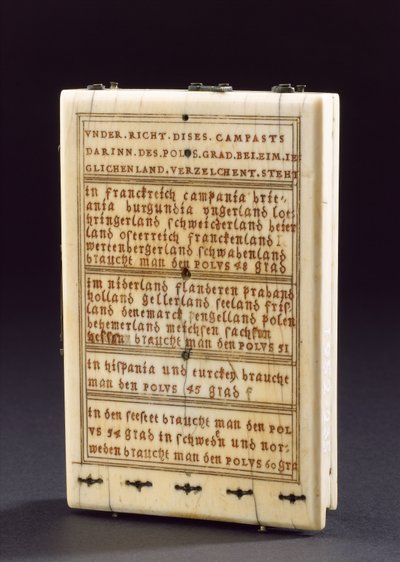 VNDER . RICHT . DISES . CAMPASTS
DARINN . DES . POLVS . GRAD . BEI . EIM . IE
GLICHENLAND . VERZELCHENT . STEHT
in franckreich campania brit-
ania burgundia vngerland lot
hringerland schweicderland beier
land osterreich franckenland
wertenbergerland schwabenland
braucht man den POLVS 48 grad
im niderland flanderen praband
holland gellerland seeland fris
land denemarck engelland polen
behemerland meichsen sachsen
hessen braucht man den POLVS 51
in hispania und turckey braucht
man den POLVS 45 grad
in den seestet braucht man den POL
VS 54 grad in schweden und nor-
weden braucht man den POLVS 60 gra